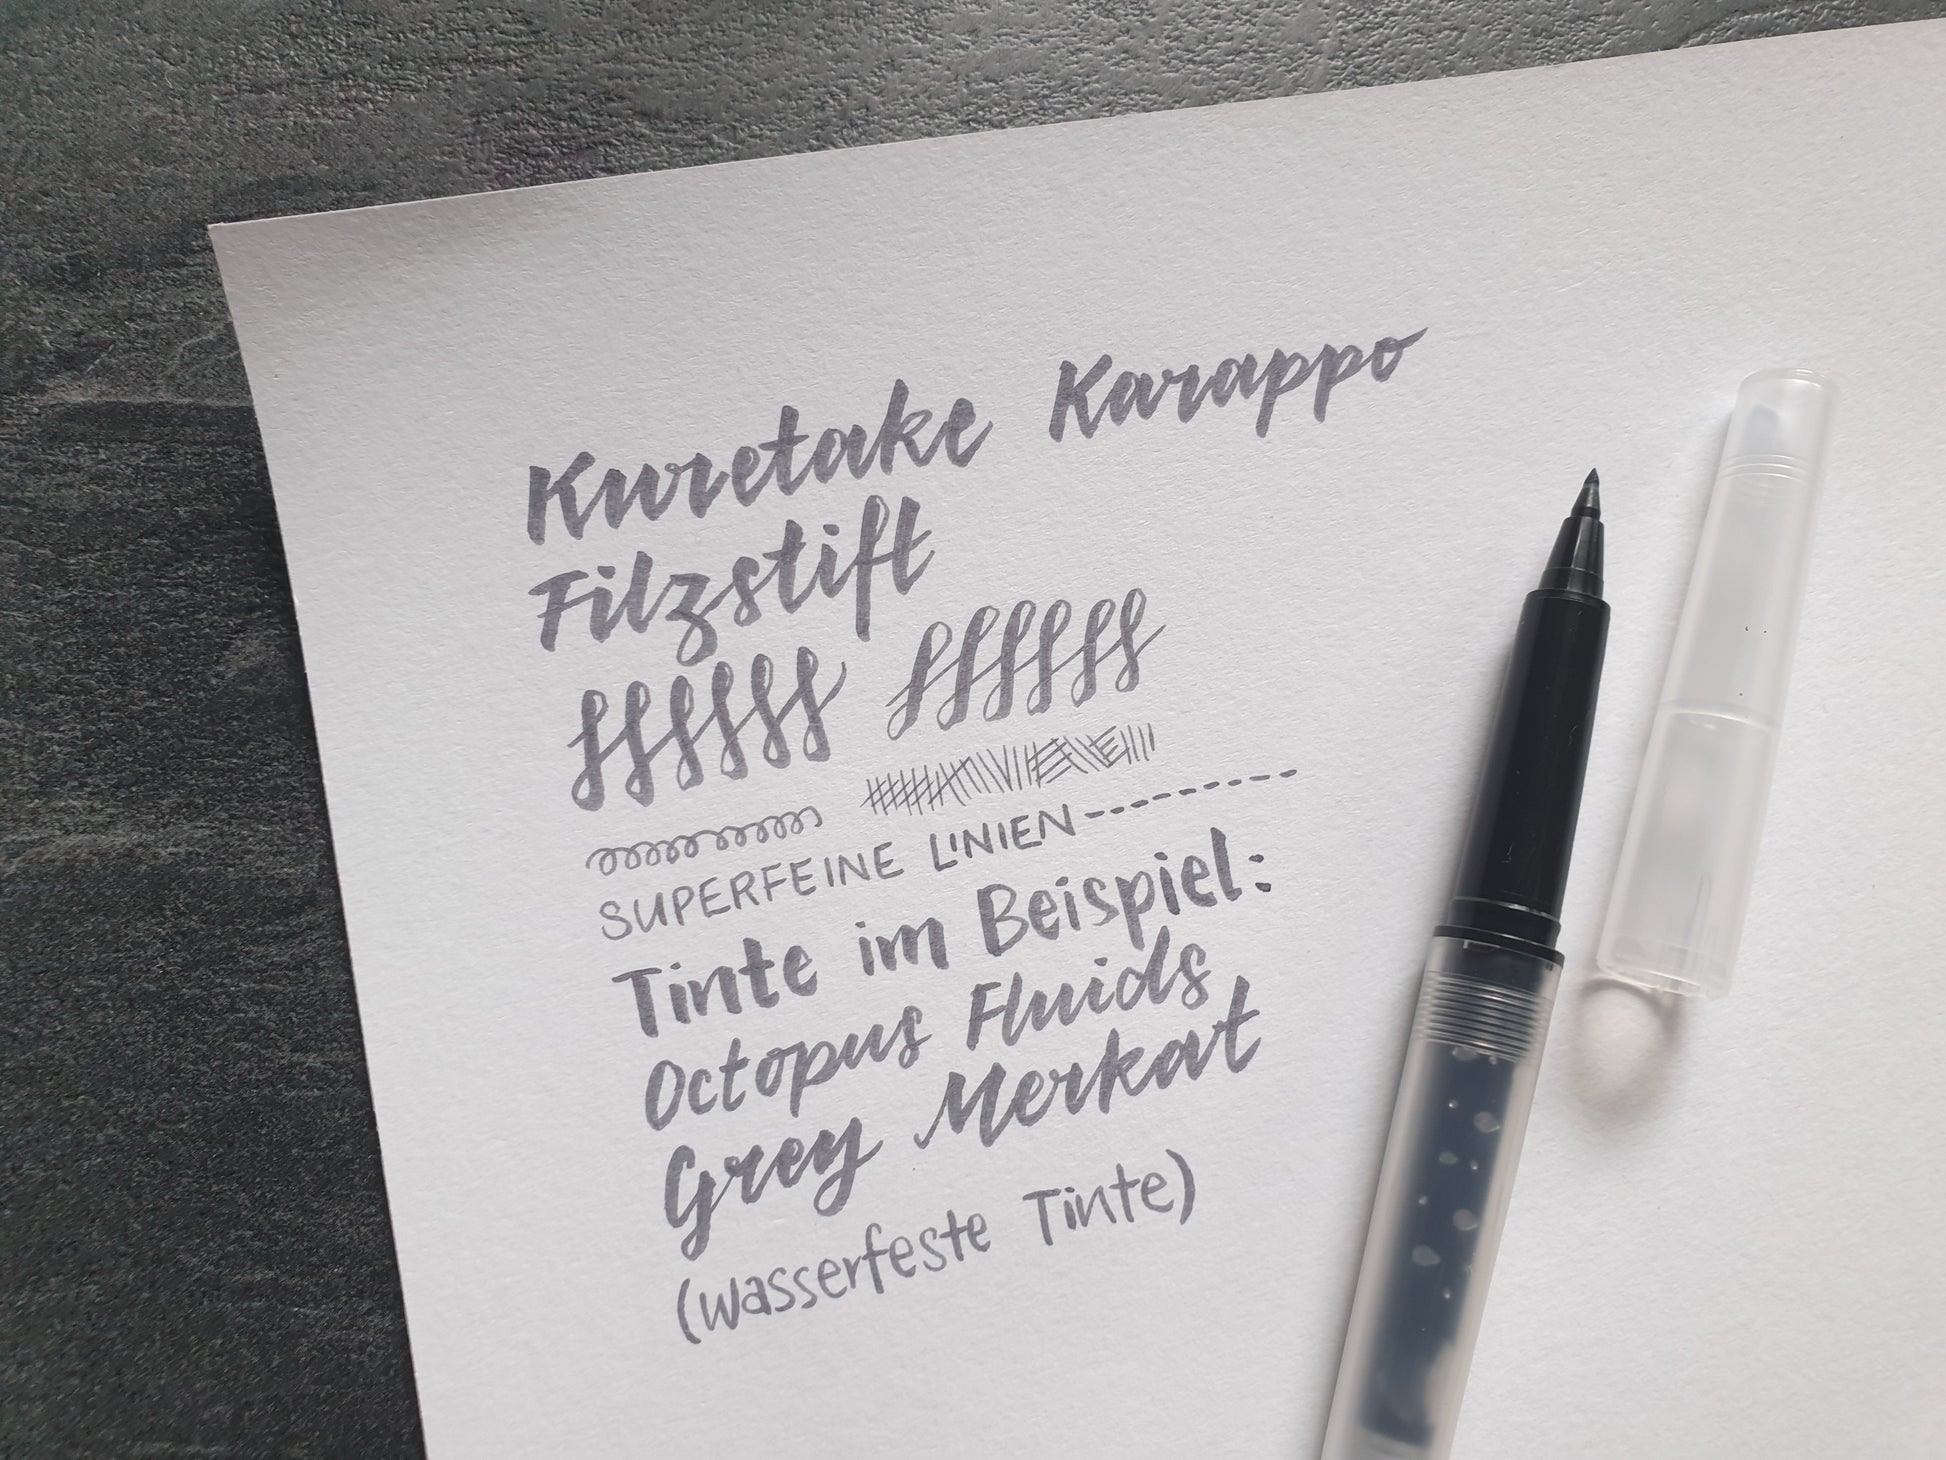 Kuretake Karappo
Filzstift
SUPERFEINE LINIEN
Tinte im Beispiel:
Octopus Fluids
Grey Merkat
(wasserfeste Tinte)